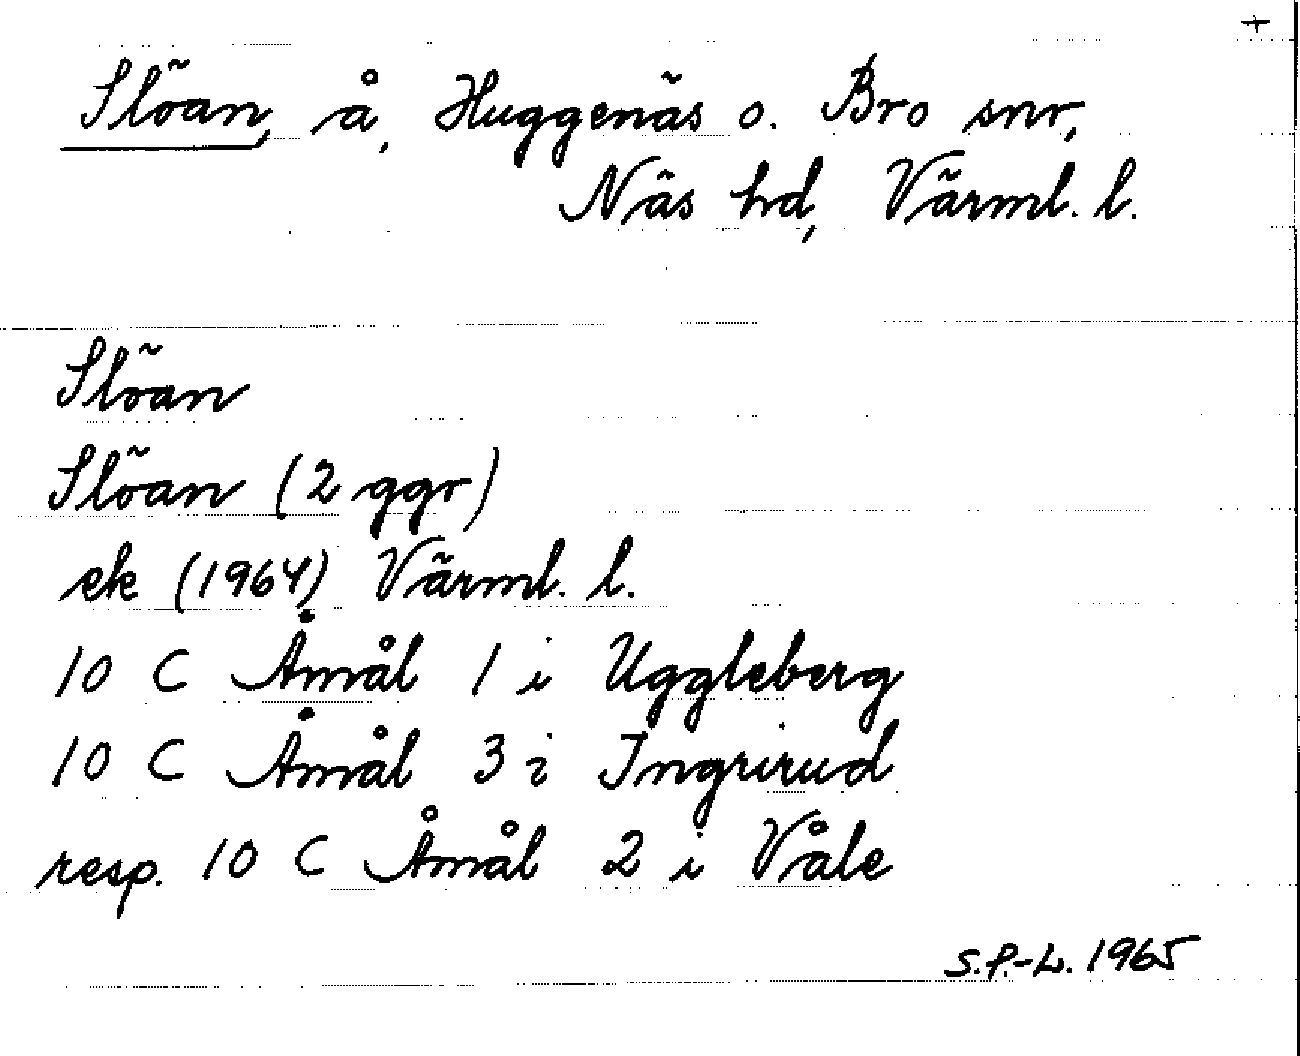 +
Slöan, å, Huggenäs o. Bro snr,
Näs hd, Värml. l.
Slöan
Slöan (2 ggr)
ek (1964) Värml. l.
10 C Åmål 1 i Uggleberg
10 C Åmål 3 i Ingrirud
resp. 10 C Åmål 2 i Våle
S.P.-L. 1965